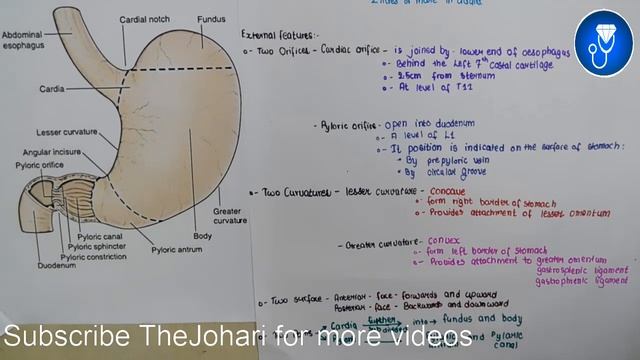 2 litres or more in adults
Cardial notch
Fundus
Abdominal
esophagus
Cardia
Lesser curvature
Angular incisure
Pyloric orifice
Pyloric canal
Pyloric sphincter
Pyloric constriction
Duodenum
Pyloric antrum
Body
Greater
curvature
External features:-
Two Orifices - Cardiac orifice - is joined by lower end of oesophagus
Behind the left 7th costal cartilage
2.5cm from sternum
At level of T11
- Pyloric orifice - open into duodenum
A level of L1
It position is indicated on the surface of stomach:
By prepyloric vein
By circular groove
Two Curvatures - lesser curvature - concave
form right border of stomach
Provides attachment of lesser omentum
- Greater curvature - convex
form left border of stomach
Provides attachment to greater omentum
gastrosplenic ligament
gastrophrenic ligament
Two surface - Anterior - face - forwards and upward
Posterior - face - Backwards and downward
Cardia further into fundus and body
subdivided
and pyloric
canal
Subscribe TheJohari for more videos